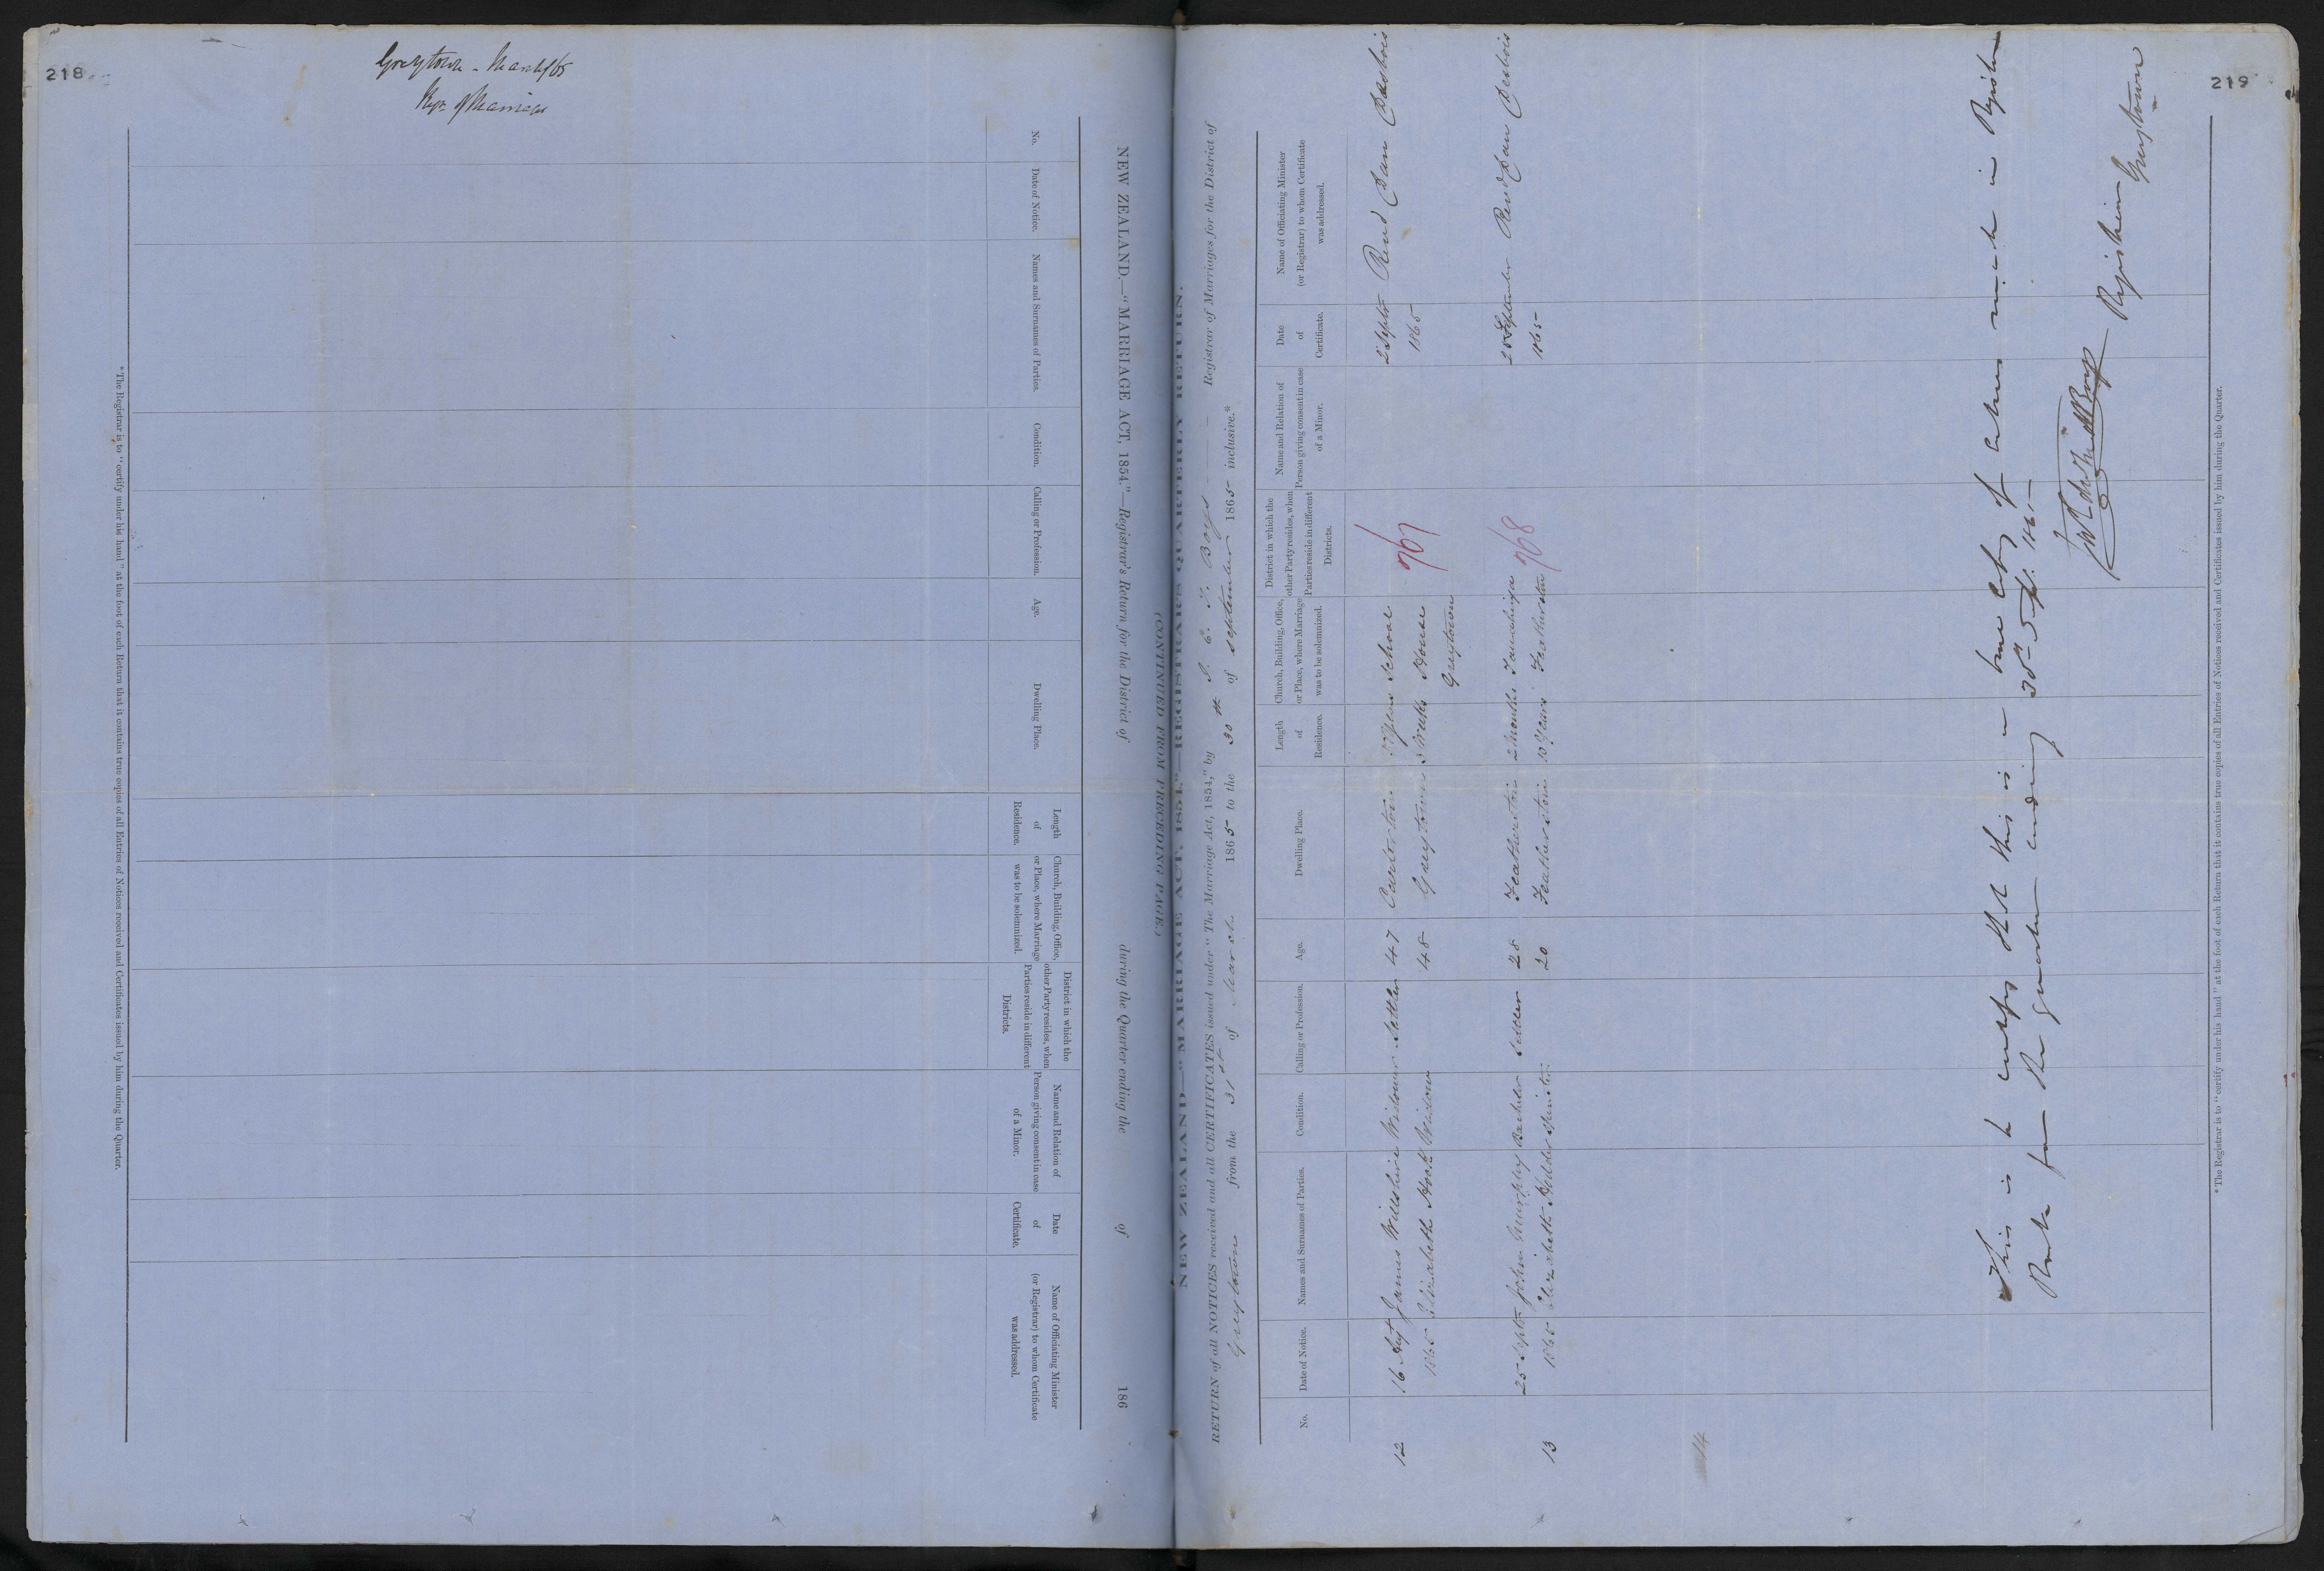 218
Greytown - March/65
(CONTINUED FROM PRECEDING PAGE.)
NEW ZEALAND.—"MARRIAGE ACT, 1854."—Registrar's Return for the District of during the Quarter ending the of 186
No.
Date of Notice.
Names and Surnames of Parties.
Condition.
Calling or Profession.
Age.
Dwelling Place.
Length
of
Residence.
Church, Building, Office,
or Place, where Marriage
was to be solemnized.
District in which the
other Party resides, when
Parties reside in different
Districts.
Name and Relation of
Person giving consent in case
of a Minor.
Date
of
Certificate.
Name of Officiating Minister
(or Registrar) to whom Certificate
was addressed.
* The Registrar is to "certify under his hand" at the foot of each Return that it contains true copies of all Entries of Notices received and Certificates issued by him during the Quarter.
219
NEW ZEALAND.—"MARRIAGE ACT, 1854."—REGISTRAR'S QUARTERLY RETURN.
RETURN of all NOTICES received and all CERTIFICATES issued under "The Marriage Act, 1854," by Boys Registrar of Marriages for the District of
Greytown from the 31st of March 1865 to the 30th of September 1865 inclusive.*
No.
Date of Notice.
Names and Surnames of Parties.
Condition.
Calling or Profession.
Age.
Dwelling Place.
Length
of
Residence.
Church, Building, Office,
or Place, where Marriage
was to be solemnized.
District in which the
other Party resides, when
Parties reside in different
Districts.
Name and Relation of
Person giving consent in case
of a Minor.
Date
of
Certificate.
Name of Officiating Minister
(or Registrar) to whom Certificate
was addressed.
12 16 Augt James Willshire Widower Settler 47 Carterton years School 767 2 Septr Revd Dan Desbois
1865 Elizabeth Hook Widow 48 Greytown 3 weeks House 1865
Greytown
13 25 Septr John Murphy Bachelor 28 Featherston 2 Months 768 28 September Revd Dan Desbois
1865 Elizabeth Holder Spinster 20 Featherston 10 Years Featherston 1865
14
This is to certify that this is a true Copy of entries made in Register
Book for the Quarter ending 30th Sept. 1865
Registrar
Greytown
* The Registrar is to "certify under his hand" at the foot of each Return that it contains true copies of all Entries of Notices received and Certificates issued by him during the Quarter.